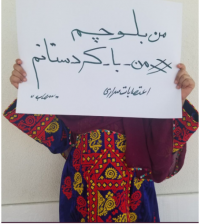 من بلوچم
#من_با_کردستانم
اعتصابات_سراری